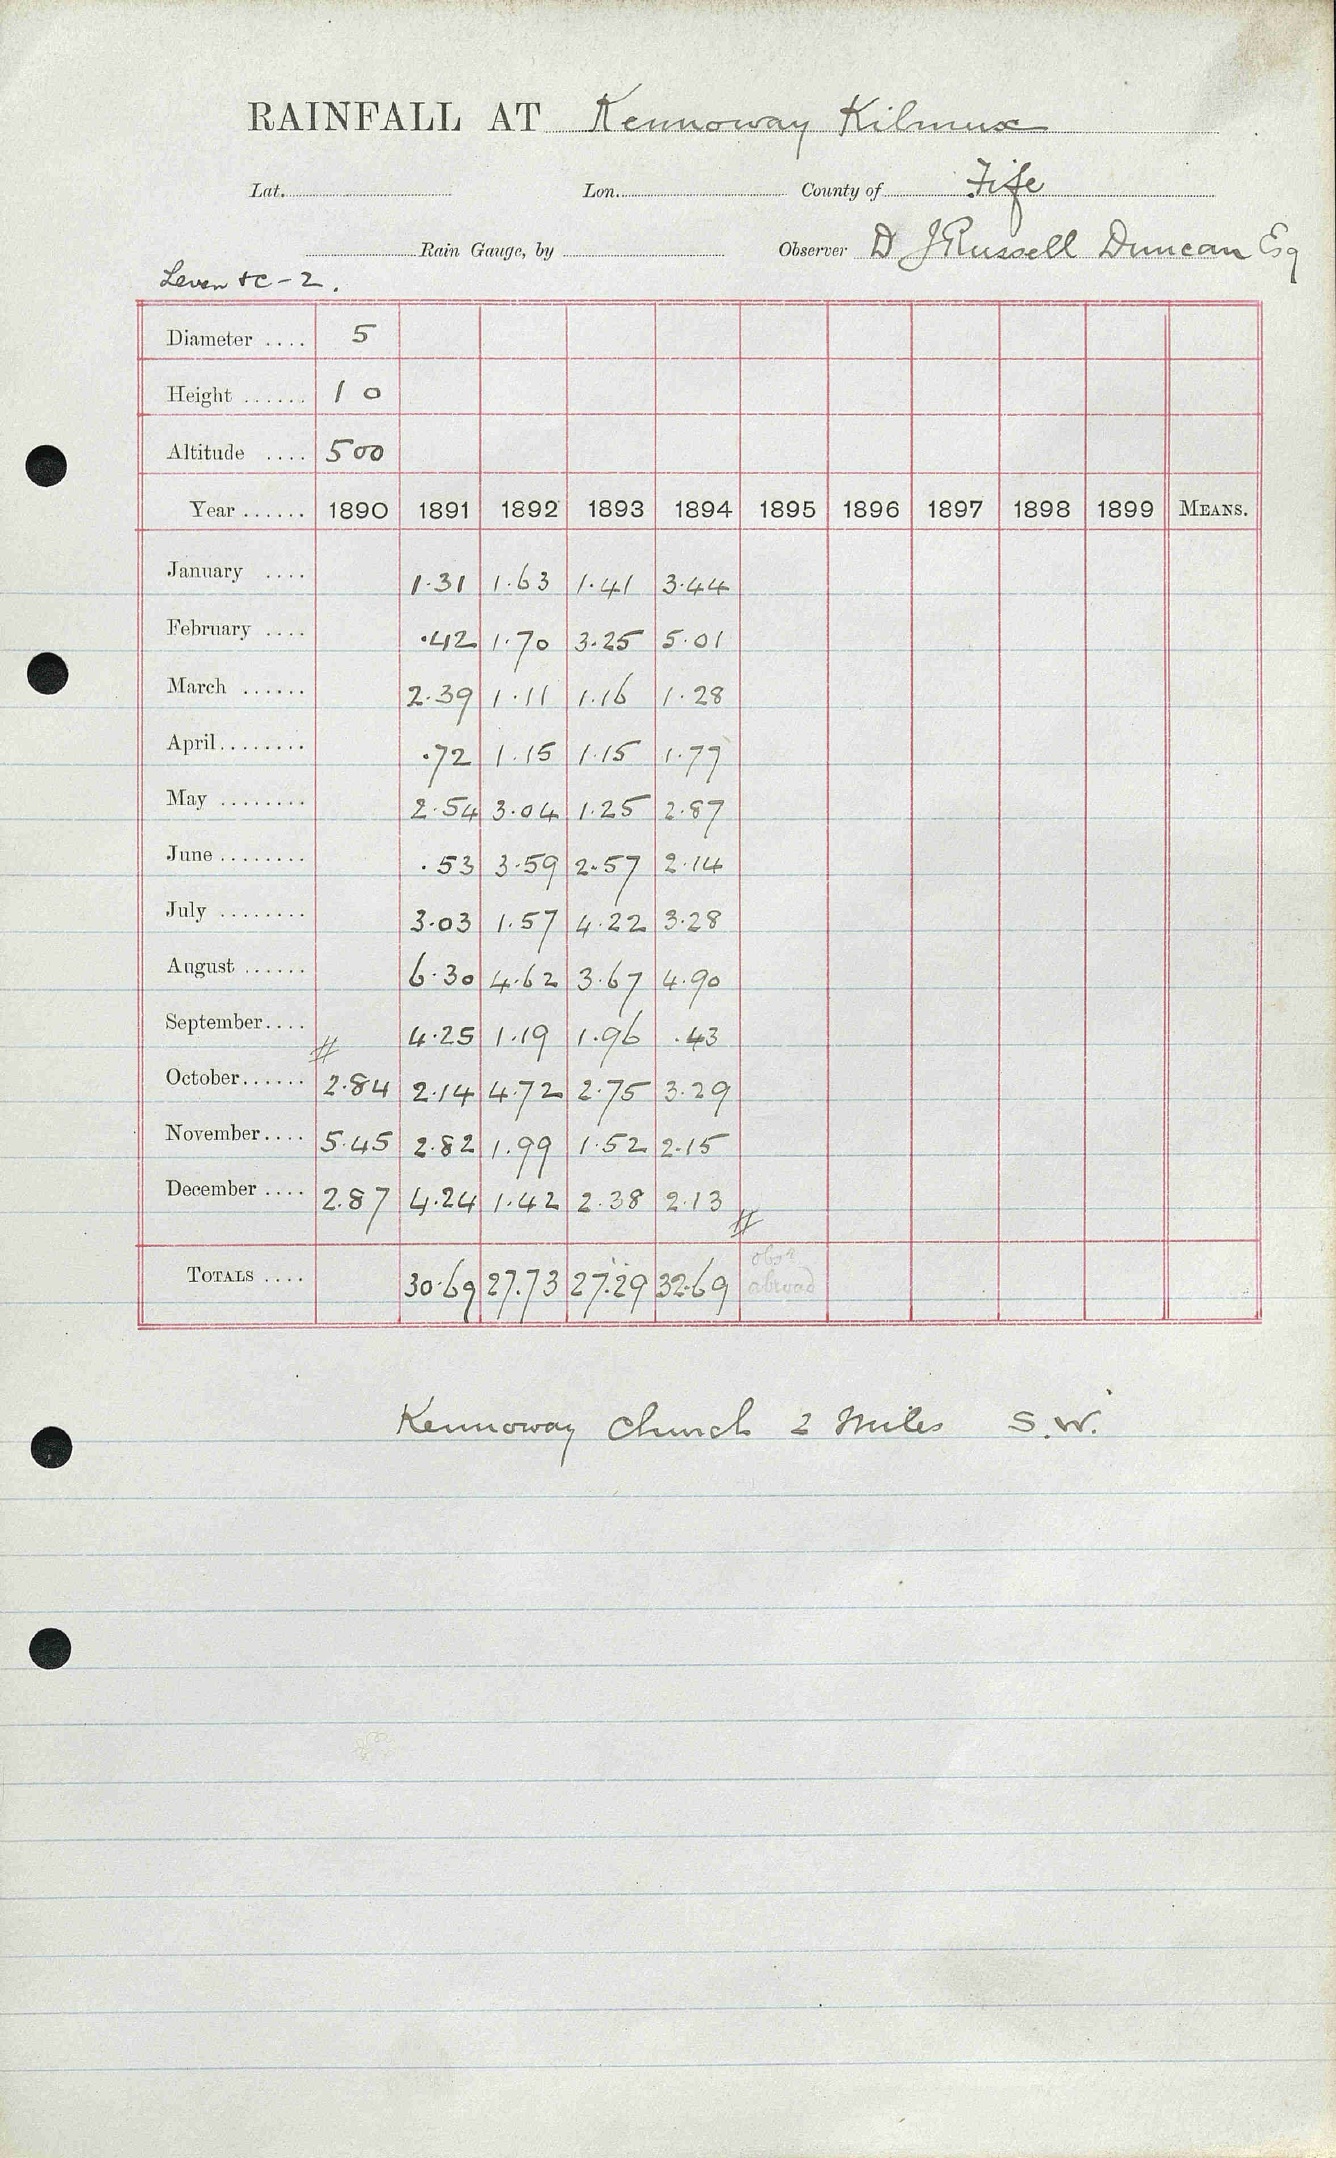 RAINFALL AT Kennoway Kilmux
Lat. Lon. County of Fife
Rain Gauge, by Observer D J Russell Duncan Esq
Leven &c - 2.
Diameter .... 5
Height ...... 1 0
Altitude .... 500
Year ...... 1890 1891 1892 1893 1894 1895 1896 1897 1898 1899 MEANS.
January .... 1.31 1.63 1.41 3.44
February .... .42 1.70 3.25 5.01
March ...... 2.39 1.11 1.16 1.28
April........ .72 1.15 1.15 1.77
May ........ 2.54 3.04 1.25 2.87
June ........ .53 3.59 2.57 2.14
July ........ 3.03 1.57 4.22 3.28
August ...... 6.30 4.62 3.67 4.90
September.... 4.25 1.19 1.96 .43
October...... 2.84 2.14 4.72 2.75 3.29
November.... 5.45 2.82 1.99 1.52 2.15
December .... 2.87 4.24 1.42 2.38 2.13
obsr
TOTALS .... 30.69 27.73 27.29 32.69 abroad
Kennoway Church 2 Miles S.W.